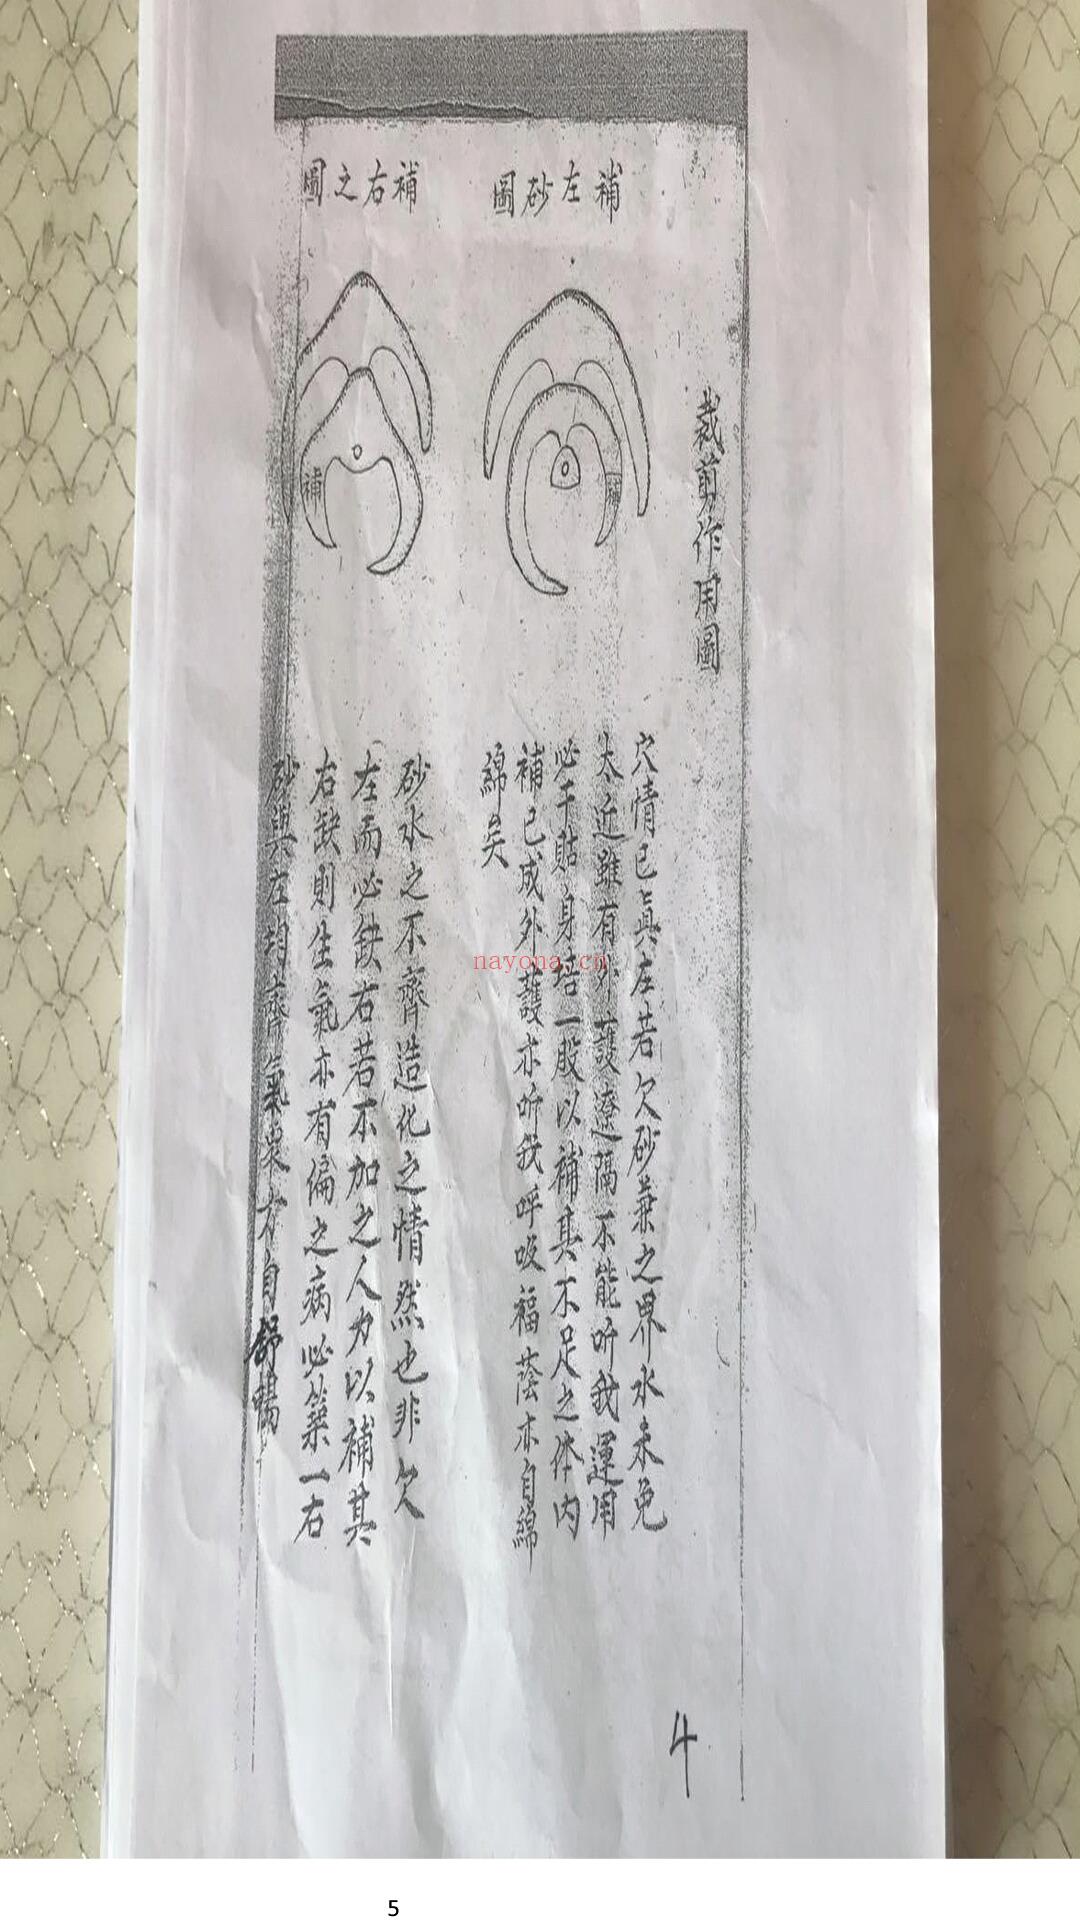 裁剪作用圖
補左砂圖
補
穴情已真左若欠砂兼之界水未免
太近雖有外護遼隔不能听我運用
必于貼身培一股以補其不足之体内
補已成外護亦听我呼吸福蔭亦自綿
綿矣
補右之圖
補
砂水之不齊造化之情然也非欠
左而必缺右若不加之人力以補其
右缺則生氣亦有偏之病必築一右
砂與左均齊氣泉方自舒暢
4
nayona.cn
5